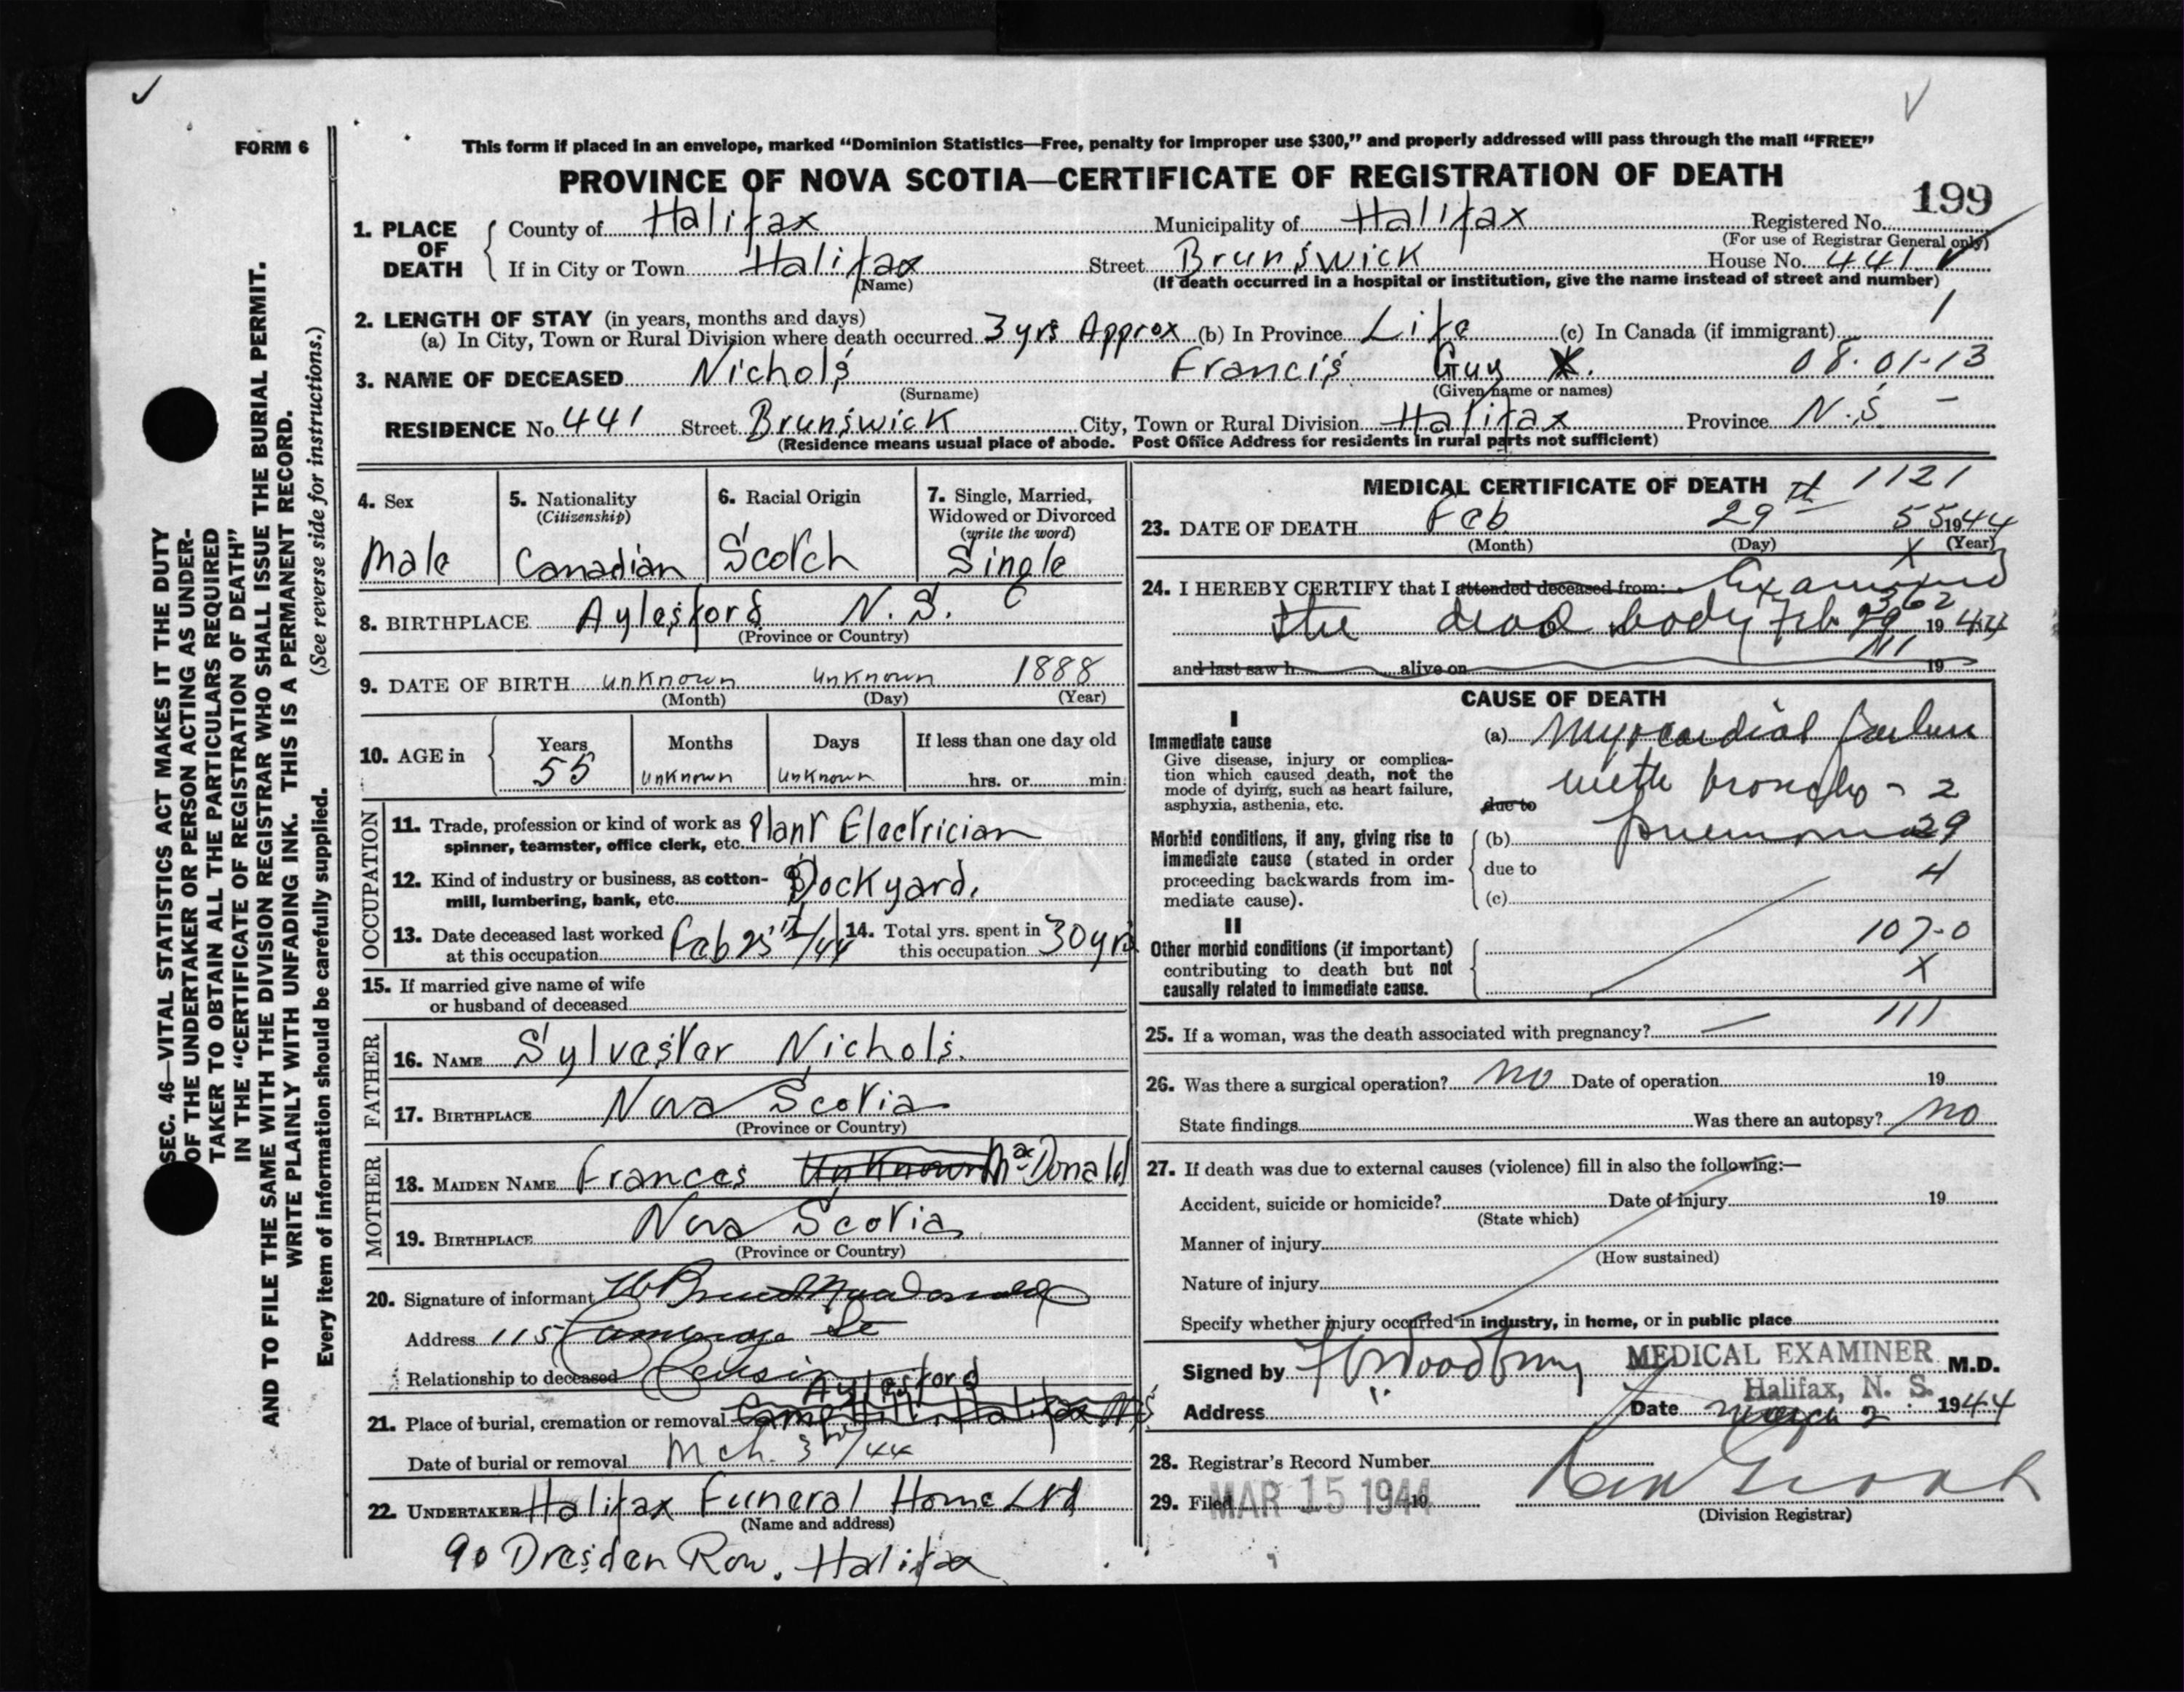 ✓
V
FORM 6
This form if placed in an envelope, marked “Dominion Statistics—Free, penalty for improper use $300,” and properly addressed will pass through the mail “FREE”
PROVINCE OF NOVA SCOTIA—CERTIFICATE OF REGISTRATION OF DEATH
199
1. PLACE OF DEATH County of Halifax Municipality of Halifax Registered No.
(For use of Registrar General only)
If in City or Town Halifax Street Brunswick House No. 441
(Name) (If death occurred in a hospital or institution, give the name instead of street and number)
2. LENGTH OF STAY (in years, months and days) 1
(a) In City, Town or Rural Division where death occurred 3 yrs Approx (b) In Province Life (c) In Canada (if immigrant)
3. NAME OF DECEASED Nichols Francis Guy X. 08-01-13
(Surname) (Given name or names)
RESIDENCE No. 441 Street Brunswick City, Town or Rural Division Halifax Province N.S. -
(Residence means usual place of abode. Post Office Address for residents in rural parts not sufficient)
4. Sex
Male
5. Nationality
(Citizenship)
Canadian
6. Racial Origin
Scotch
7. Single, Married,
Widowed or Divorced
(write the word)
Single
8. BIRTHPLACE Aylesford N.S.
(Province or Country)
9. DATE OF BIRTH unknown unknown 1888
(Month) (Day) (Year)
10. AGE in Years Months Days If less than one day old
55 unknown unknown hrs. or min.
OCCUPATION
11. Trade, profession or kind of work as
spinner, teamster, office clerk, etc. Plant Electrician
12. Kind of industry or business, as cotton-
mill, lumbering, bank, etc. Dockyard.
13. Date deceased last worked
at this occupation Feb 25th/44
14. Total yrs. spent in
this occupation 30 yrs
15. If married give name of wife
or husband of deceased
FATHER
16. NAME Sylvester Nichols.
17. BIRTHPLACE Nova Scotia
(Province or Country)
MOTHER
18. MAIDEN NAME Frances Unknown MacDonald
19. BIRTHPLACE Nova Scotia
(Province or Country)
20. Signature of informant MacDonald
Address 115 Cambridge St
Relationship to deceased Cousin
Aylesford
21. Place of burial, cremation or removal Camp Hill Halifax N.S.
Date of burial or removal Mch. 3rd/44
22. UNDERTAKER Halifax Funeral Home Ltd
(Name and address)
90 Dresden Row, Halifax
MEDICAL CERTIFICATE OF DEATH 1121
23. DATE OF DEATH Feb 29th 55 1944
(Month) (Day) X (Year)
24. I HEREBY CERTIFY that I attended deceased from: Examined
362
the dead body Feb 29 1944
111
and last saw h alive on 19
CAUSE OF DEATH
I
Immediate cause
Give disease, injury or complica-
tion which caused death, not the
mode of dying, such as heart failure,
asphyxia, asthenia, etc.
(a) Myocardial failure
due to with broncho- 2
Morbid conditions, if any, giving rise to
immediate cause (stated in order
proceeding backwards from im-
mediate cause).
(b) pneumonia 29
due to 4
(c)
II
Other morbid conditions (if important)
contributing to death but not
causally related to immediate cause.
107-0
X
25. If a woman, was the death associated with pregnancy? — 111
26. Was there a surgical operation? no Date of operation 19
State findings Was there an autopsy? no
27. If death was due to external causes (violence) fill in also the following:—
Accident, suicide or homicide? Date of injury 19
(State which)
Manner of injury
(How sustained)
Nature of injury
Specify whether injury occurred in industry, in home, or in public place
Signed by Woodbury MEDICAL EXAMINER M.D.
Halifax, N. S.
Address Date March 2 1944
28. Registrar's Record Number
29. Filed MAR 15 1944 19
(Division Registrar)
SEC. 46—VITAL STATISTICS ACT MAKES IT THE DUTY
OF THE UNDERTAKER OR PERSON ACTING AS UNDER-
TAKER TO OBTAIN ALL THE PARTICULARS REQUIRED
IN THE “CERTIFICATE OF REGISTRATION OF DEATH”
AND TO FILE THE SAME WITH THE DIVISION REGISTRAR WHO SHALL ISSUE THE BURIAL PERMIT.
WRITE PLAINLY WITH UNFADING INK. THIS IS A PERMANENT RECORD.
Every item of information should be carefully supplied. (See reverse side for instructions.)